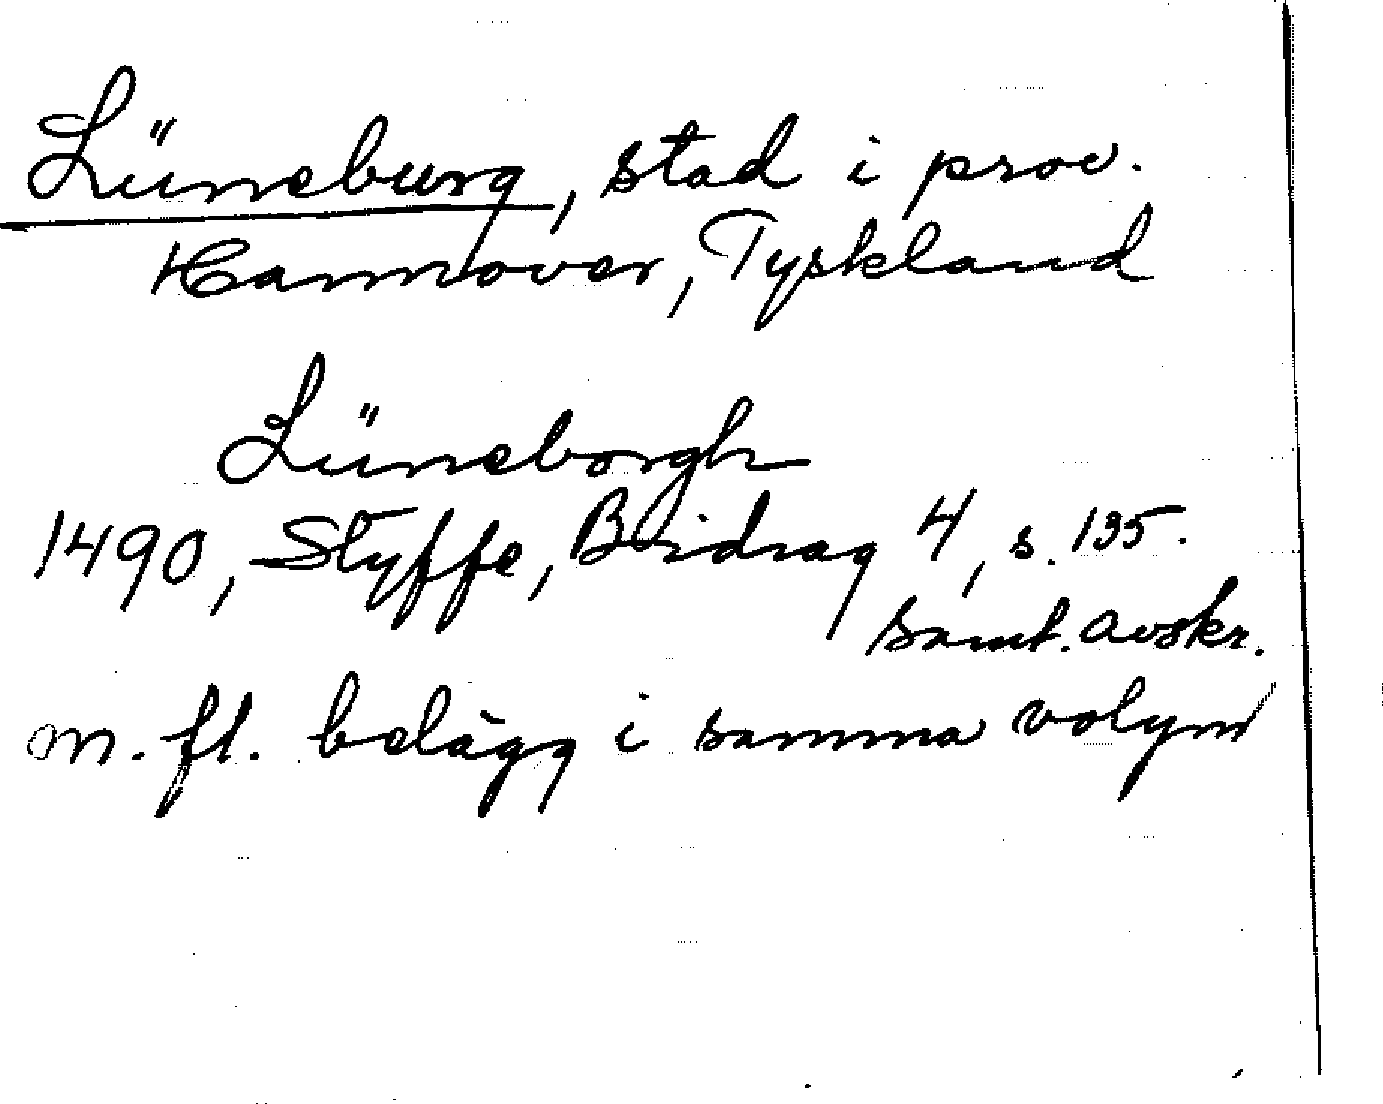 Lüneburg, stad i prov.
Hannover, Tyskland
Lüneborgh
1490, Styffe, Bidrag 4, s. 135.
samt. avskr.
m. fl. belägg i samma volym